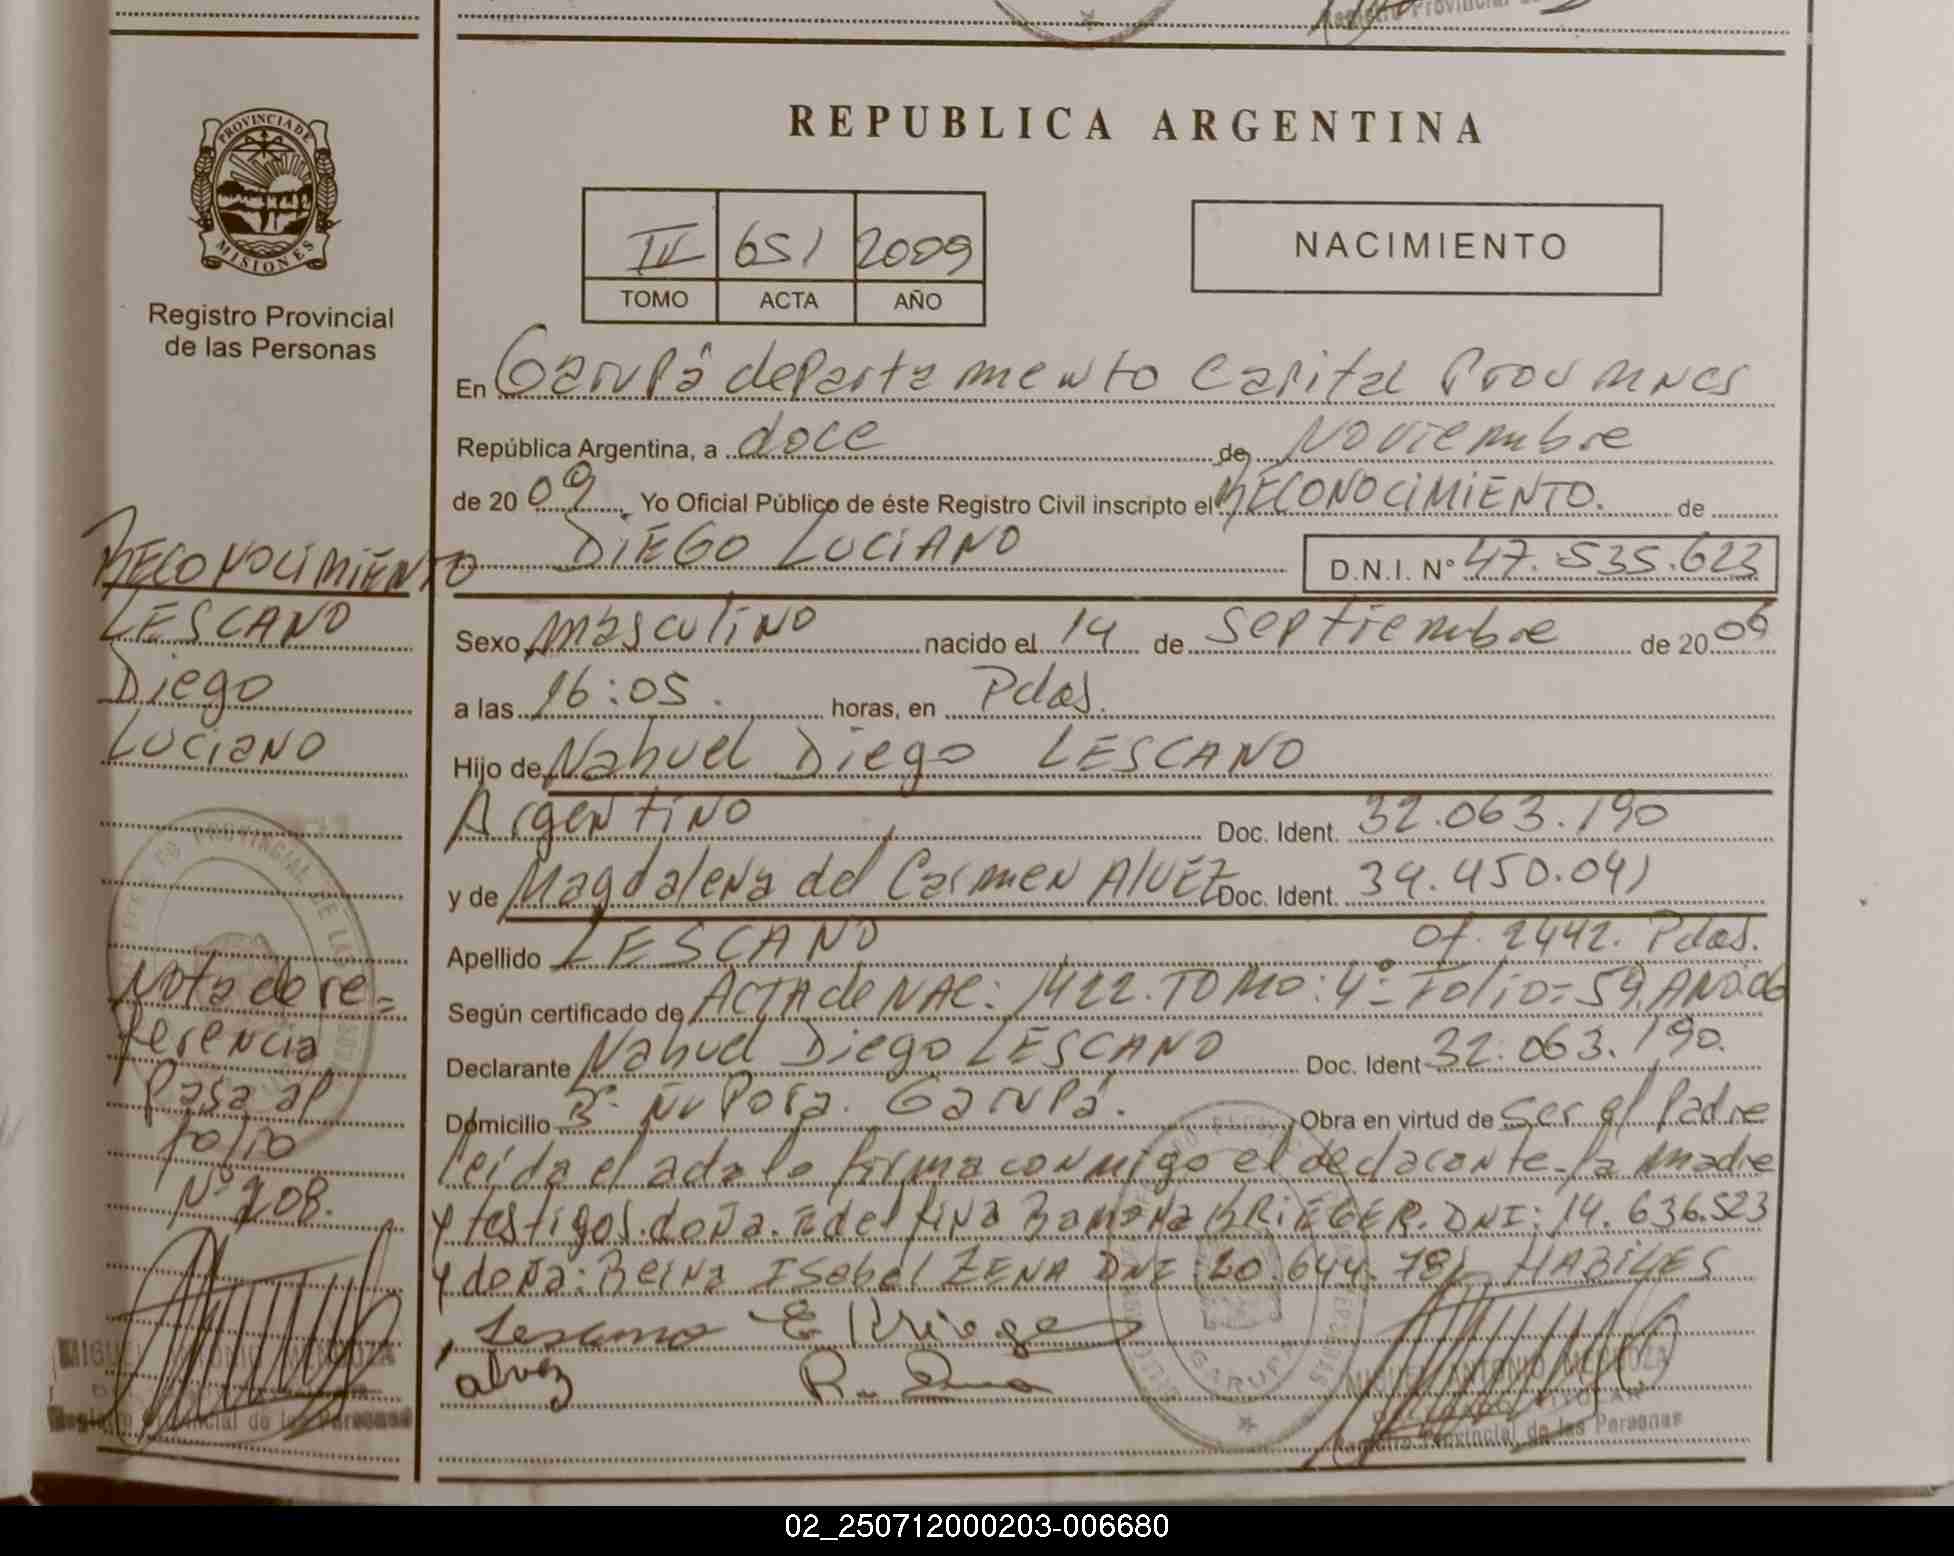 PROVINCIA DE
MISIONES
Registro Provincial
de las Personas
RECONOCIMIENTO
LESCANO
Diego
Luciano
Nota de re=
ferencia
Pasa al
folio
Nº 208.
MIGUEL ANTONIO MENDOZA
Registro Provincial de las Personas
REPUBLICA ARGENTINA
IV 651 2009
TOMO ACTA AÑO
NACIMIENTO
En Garupá departamento Capital Prov Mnes
República Argentina, a doce de Noviembre
de 20 09 Yo Oficial Público de éste Registro Civil inscripto el RECONOCIMIENTO. de
DIEGO LUCIANO D.N.I. Nº 47.535.623
Sexo masculino nacido el 14 de septiembre de 20 06
a las 16:05. horas, en Pdas.
Hijo de Nahuel Diego LESCANO
Argentino Doc. Ident. 32.063.190
y de Magdalena del Carmen AlVEZ Doc. Ident. 34.450.041
Apellido LESCANO Of. 2442. Pdas.
Según certificado de ACTA de NAC: 1422. TOMO: 4º= Folio=59. AÑO 06
Declarante Nahuel Diego LESCANO Doc. Ident 32.063.190.
Domicilio Bº Ñu Pora. Garupá. Obra en virtud de ser el Padre
leída el acta la firma conmigo el declarante-la madre
y testigos. doña. Edelfina Ramona KRIEGER. DNI: 14.636.523
y doña: Reina Isabel ZENA DNI 20.644.781 HABILES
Lescano E Krieger
alvez R.
GARUPA
MIGUEL ANTONIO MENDOZA
DELEGADO TITULAR
Registro Provincial de las Personas
02_250712000203-006680